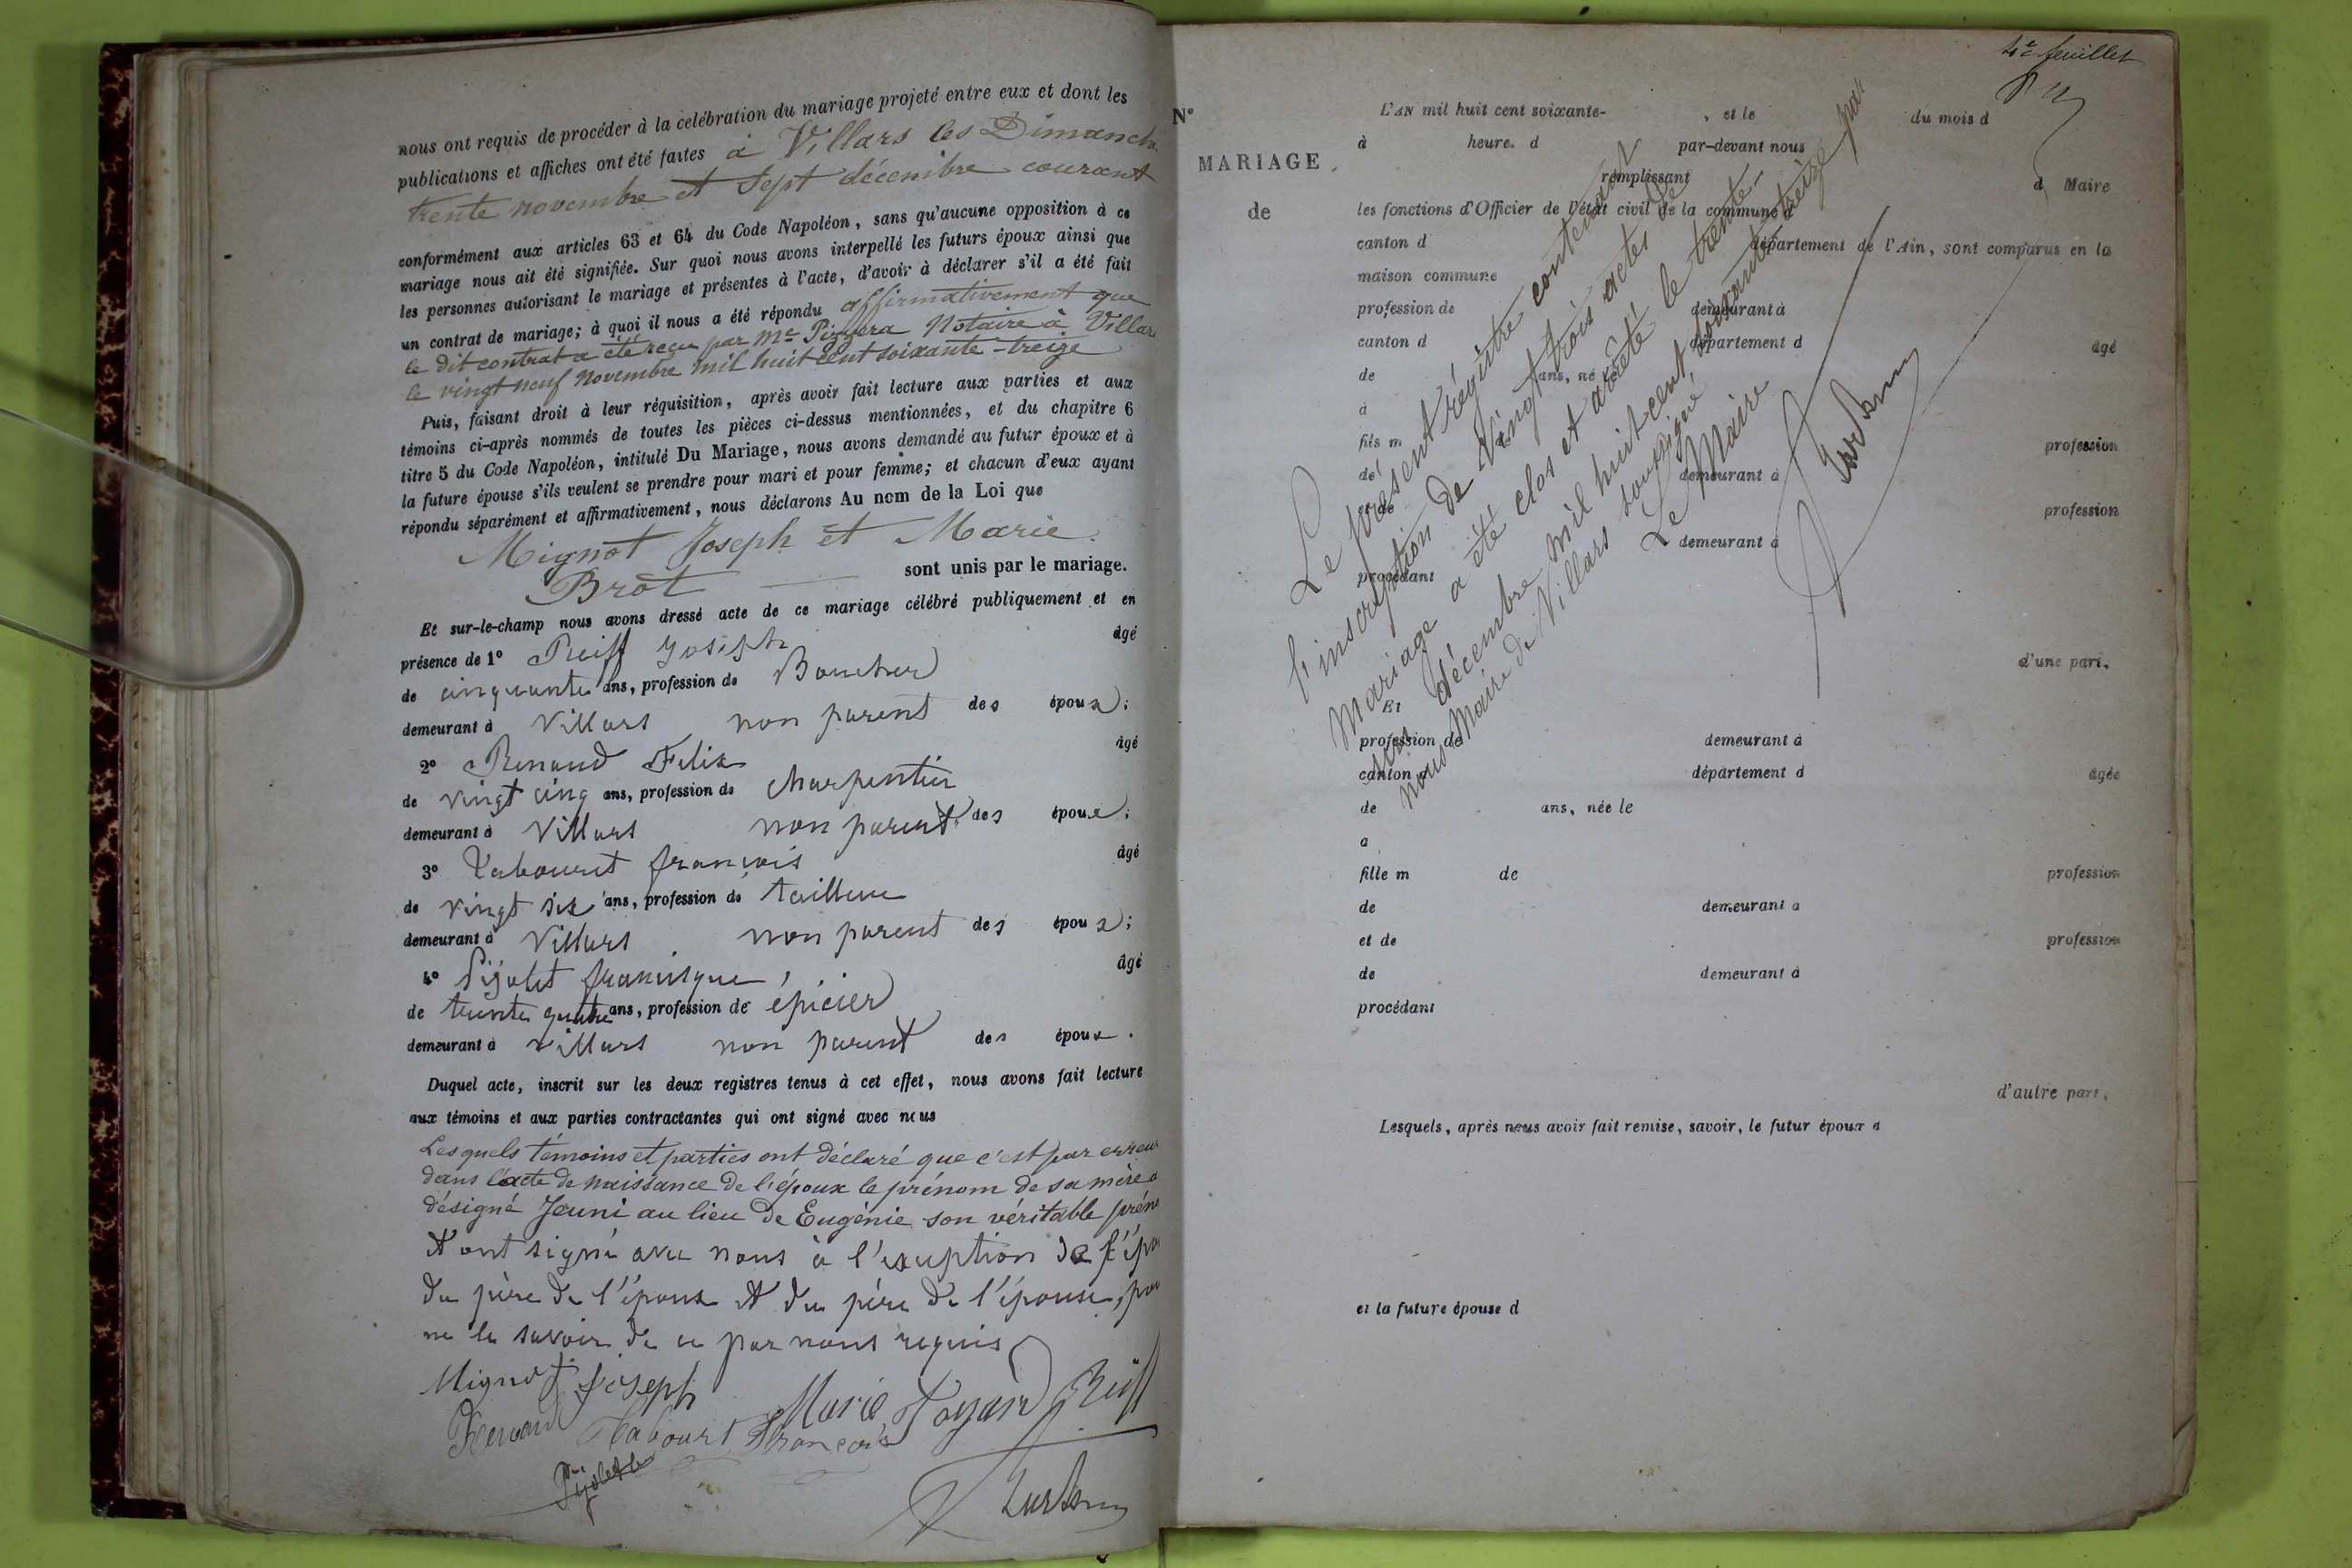 nous ont requis de procéder à la célébration du mariage projeté entre eux et dont les
publications et affiches ont été faites à Villars les Dimanche
trente novembre et Sept décembre courant
conformément aux articles 63 et 64 du Code Napoléon, sans qu'aucune opposition à ce
mariage nous ait été signifiée. Sur quoi nous avons interpellé les futurs époux ainsi que
les personnes autorisant le mariage et présentes à l'acte, d'avoir à déclarer s'il a été fait
un contrat de mariage; à quoi il nous a été répondu affirmativement que
le dit contrat a été reçu par Me Notaire à Villar
le vingt neuf Novembre mil huit cent soixante-treize
Puis, faisant droit à leur réquisition, après avoir fait lecture aux parties et aux
témoins ci-après nommés de toutes les pièces ci-dessus mentionnées, et du chapitre 6
titre 5 du Code Napoléon, intitulé Du Mariage, nous avons demandé au futur époux et à
la future épouse s'ils veulent se prendre pour mari et pour femme; et chacun d'eux ayant
répondu séparément et affirmativement, nous déclarons Au nom de la Loi que
Mignot Joseph et Marie
Brot sont unis par le mariage.
Et sur-le-champ nous avons dressé acte de ce mariage célébré publiquement et en
présence de 1º Reiff Joseph âgé
de cinquante ans, profession de Boucher
demeurant à Villars non parent des époux;
2º Renaud Felix âgé
de vingt cinq ans, profession de charpentier
demeurant à Villars non parent des époux;
3º Tabouret françois âgé
de vingt six ans, profession de tailleur
demeurant à Villars non parent des époux;
4º Pijolet francisque âgé
de trente quatre ans, profession de épicier
demeurant à villars non parent des époux.
Duquel acte, inscrit sur les deux registres tenus à cet effet, nous avons fait lecture
aux témoins et aux parties contractantes qui ont signé avec nous
Lesquels témoins et parties ont déclaré que c'est par erreur
dans l'acte de naissance de l'époux le prénom de sa mère a
désigné Jeuni au lieu de Eugénie son véritable préno
et ont signé avec nous à l'exception de l'épo
du père de l'époux et du père de l'épouse, pou
ne le savoir de ce par nous requis
Mignot Joseph
Marie Reiff
Renaud Tabouret François
Pijolet
4e feuillet
Nº
MARIAGE
de
L'AN mil huit cent soixante- , et le du mois d
à heure. d par-devant nous
remplissant d Maire
les fonctions d'Officier de l'état civil de la commune d
canton d département de l'Ain, sont comparus en la
maison commune
profession de demeurant à
canton d département d âgé
de ans, né le
à
fils m de profession
de demeurant à
et de profession
demeurant à
procédant
d'une part.
Et
profession de demeurant à
canton d département d âgée
de ans, née le
a
fille m de profession
de demeurant a
et de profession
de demeurant à
procédant
d'autre part.
Lesquels, après nous avoir fait remise, savoir, le futur époux d
et la future épouse d
Le présent régitre contenant
l'inscription de vingt trois actes de
Mariage a été clos et arrêté le trente-
un décembre mil huit-cent soixante treize par
nous Maire de Villars soussigné
Le Maire